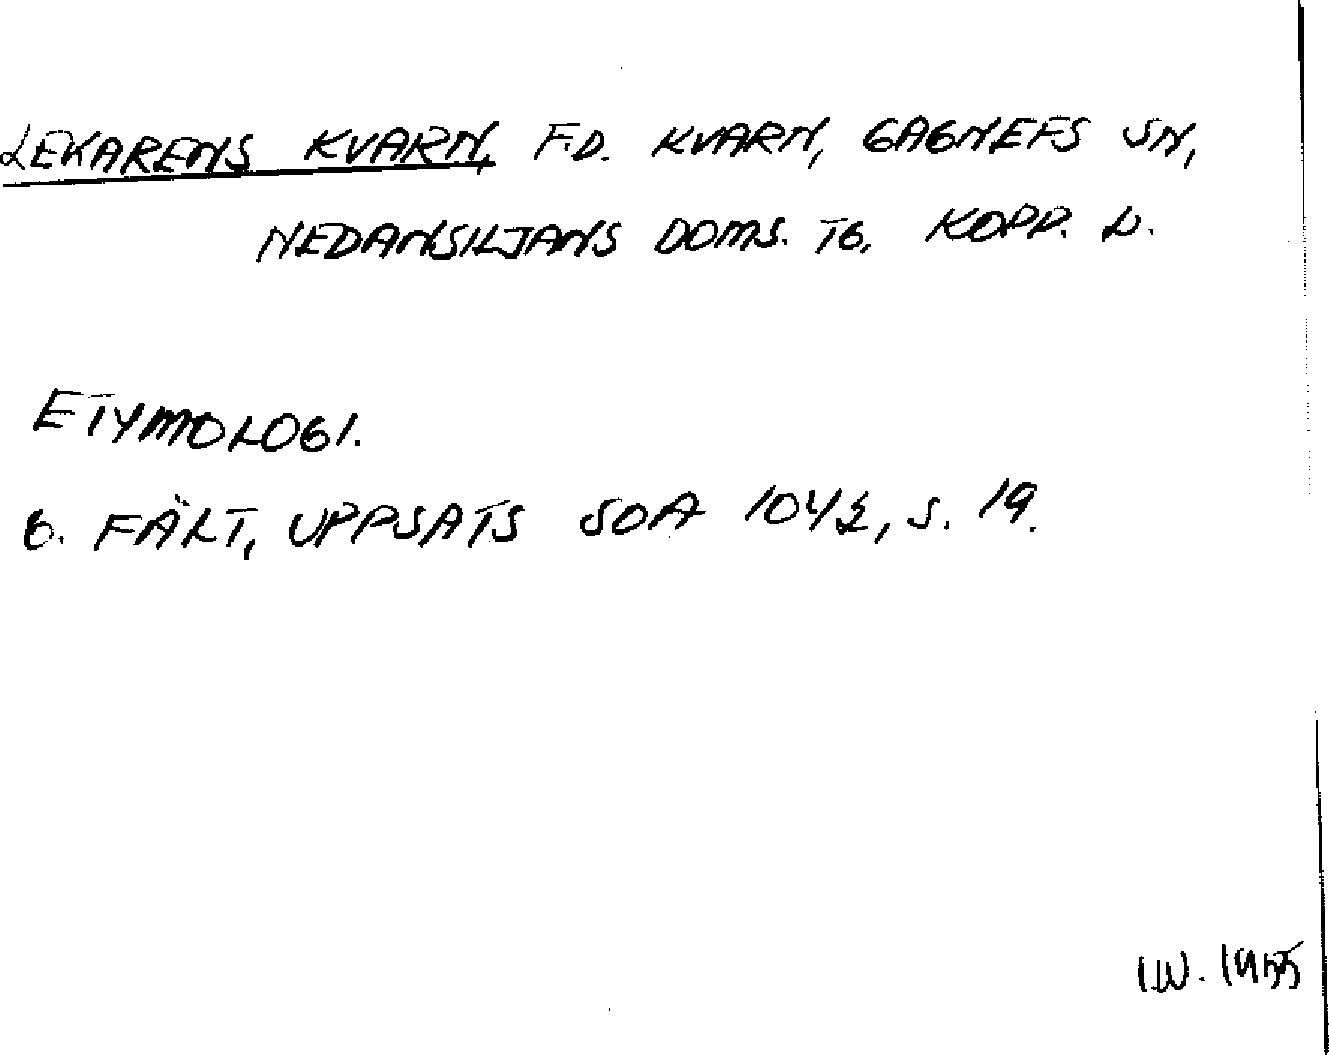 LEKARENS KVARN, F.D. KVARN, GAGNEFS SN,
NEDANSILJANS DOMS. TG, KOPP. L.
ETYMOLOGI.
G. FÄLT, UPPSATS SOA 104½, S. 19.
I.W. 1955